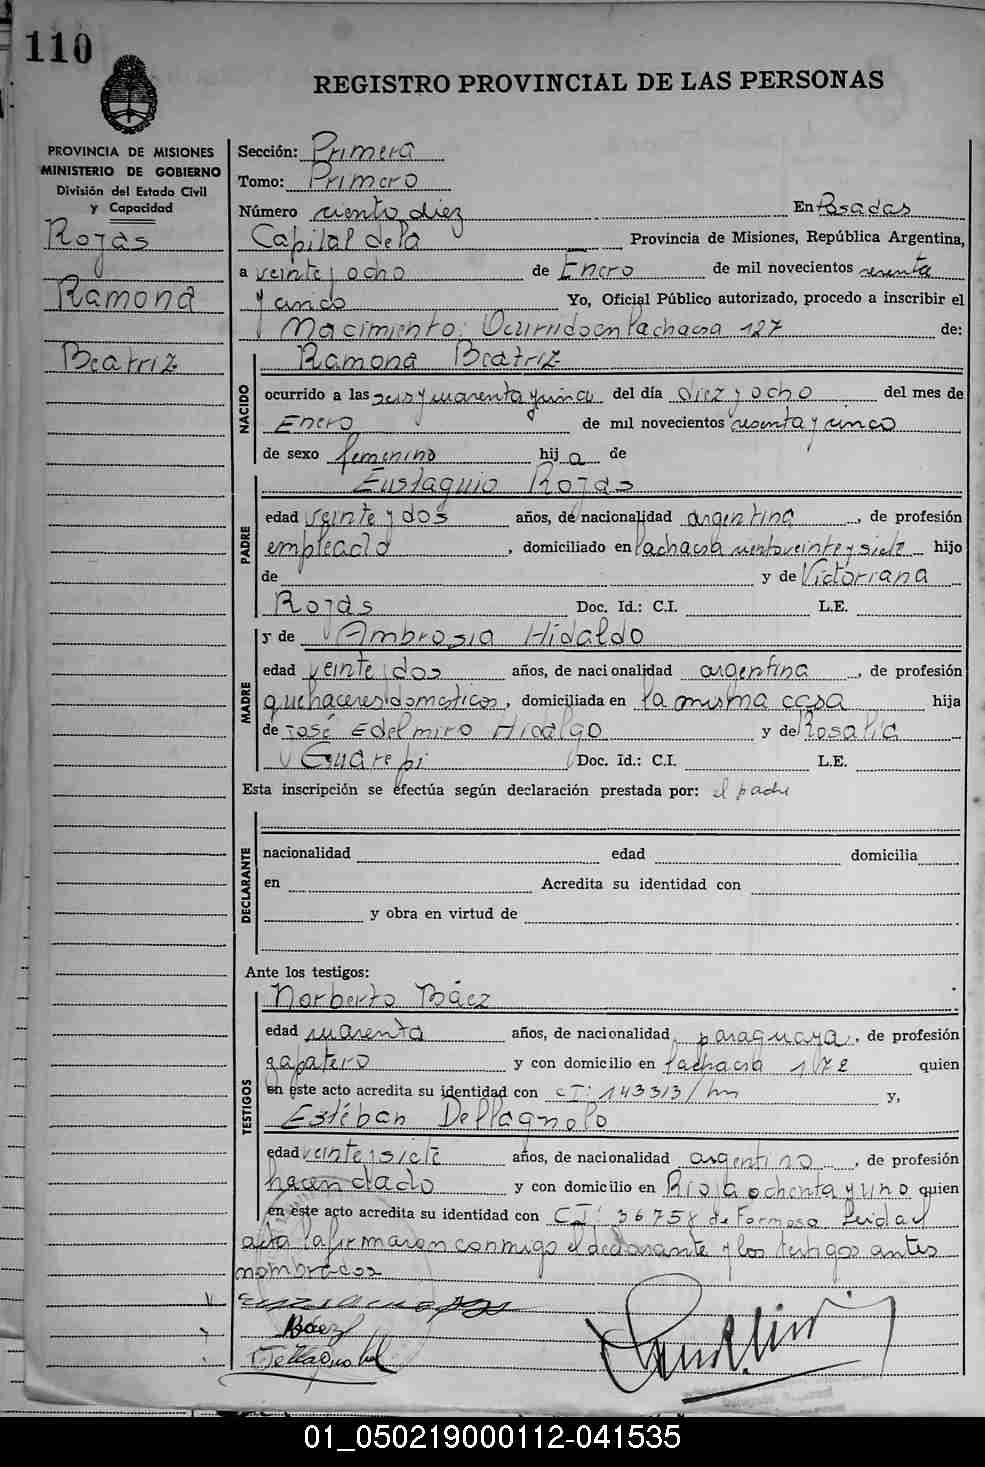 110
REGISTRO PROVINCIAL DE LAS PERSONAS
PROVINCIA DE MISIONES
MINISTERIO DE GOBIERNO
División del Estado Civil
y Capacidad
Rojas
Ramona
Beatriz
Sección: Primera
Tomo: Primero
Número ciento diez En Posadas
Capital de la Provincia de Misiones, República Argentina,
a veinte y ocho de Enero de mil novecientos sesenta
y cinco Yo, Oficial Público autorizado, procedo a inscribir el
Nacimiento: Ocurrido en Lachacra 127 de:
NACIDO
Ramona Beatriz
ocurrido a las seis y cuarenta y cinco del día diez y ocho del mes de
Enero de mil novecientos sesenta y cinco
de sexo femenino hija de
PADRE
Eustaquio Rojas
edad veinte y dos años, de nacionalidad argentina, de profesión
empleado, domiciliado en Lachacra ciento veinte y siete hijo
de y de Victoriana
Rojas Doc. Id.: C.I. L.E.
MADRE
y de Ambrosia Hidaldo
edad veinte y dos años, de nacionalidad argentina, de profesión
quehaceres domesticos, domiciliada en la misma casa hija
de José Edelmiro Hidalgo y de Rosalia
Guarepi Doc. Id.: C.I. L.E.
Esta inscripción se efectúa según declaración prestada por: el padre
DECLARANTE
nacionalidad edad domicilia
en Acredita su identidad con
y obra en virtud de
Ante los testigos:
TESTIGOS
Norberto Báez
edad cuarenta años, de nacionalidad paraguaya, de profesión
zapatero y con domicilio en Lachacra 172 quien
en este acto acredita su identidad con CI: 143313/mn y,
Estéban Dellagnolo
edad veinte y siete años, de nacionalidad argentino, de profesión
hacendado y con domicilio en Rioja ochenta y uno quien
en este acto acredita su identidad con CI: 36758 de Formosa Leida el
acta la firmaron conmigo el declarante y los testigos antes
nombrados
Báez
Dellagnolo
01_050219000112-041535